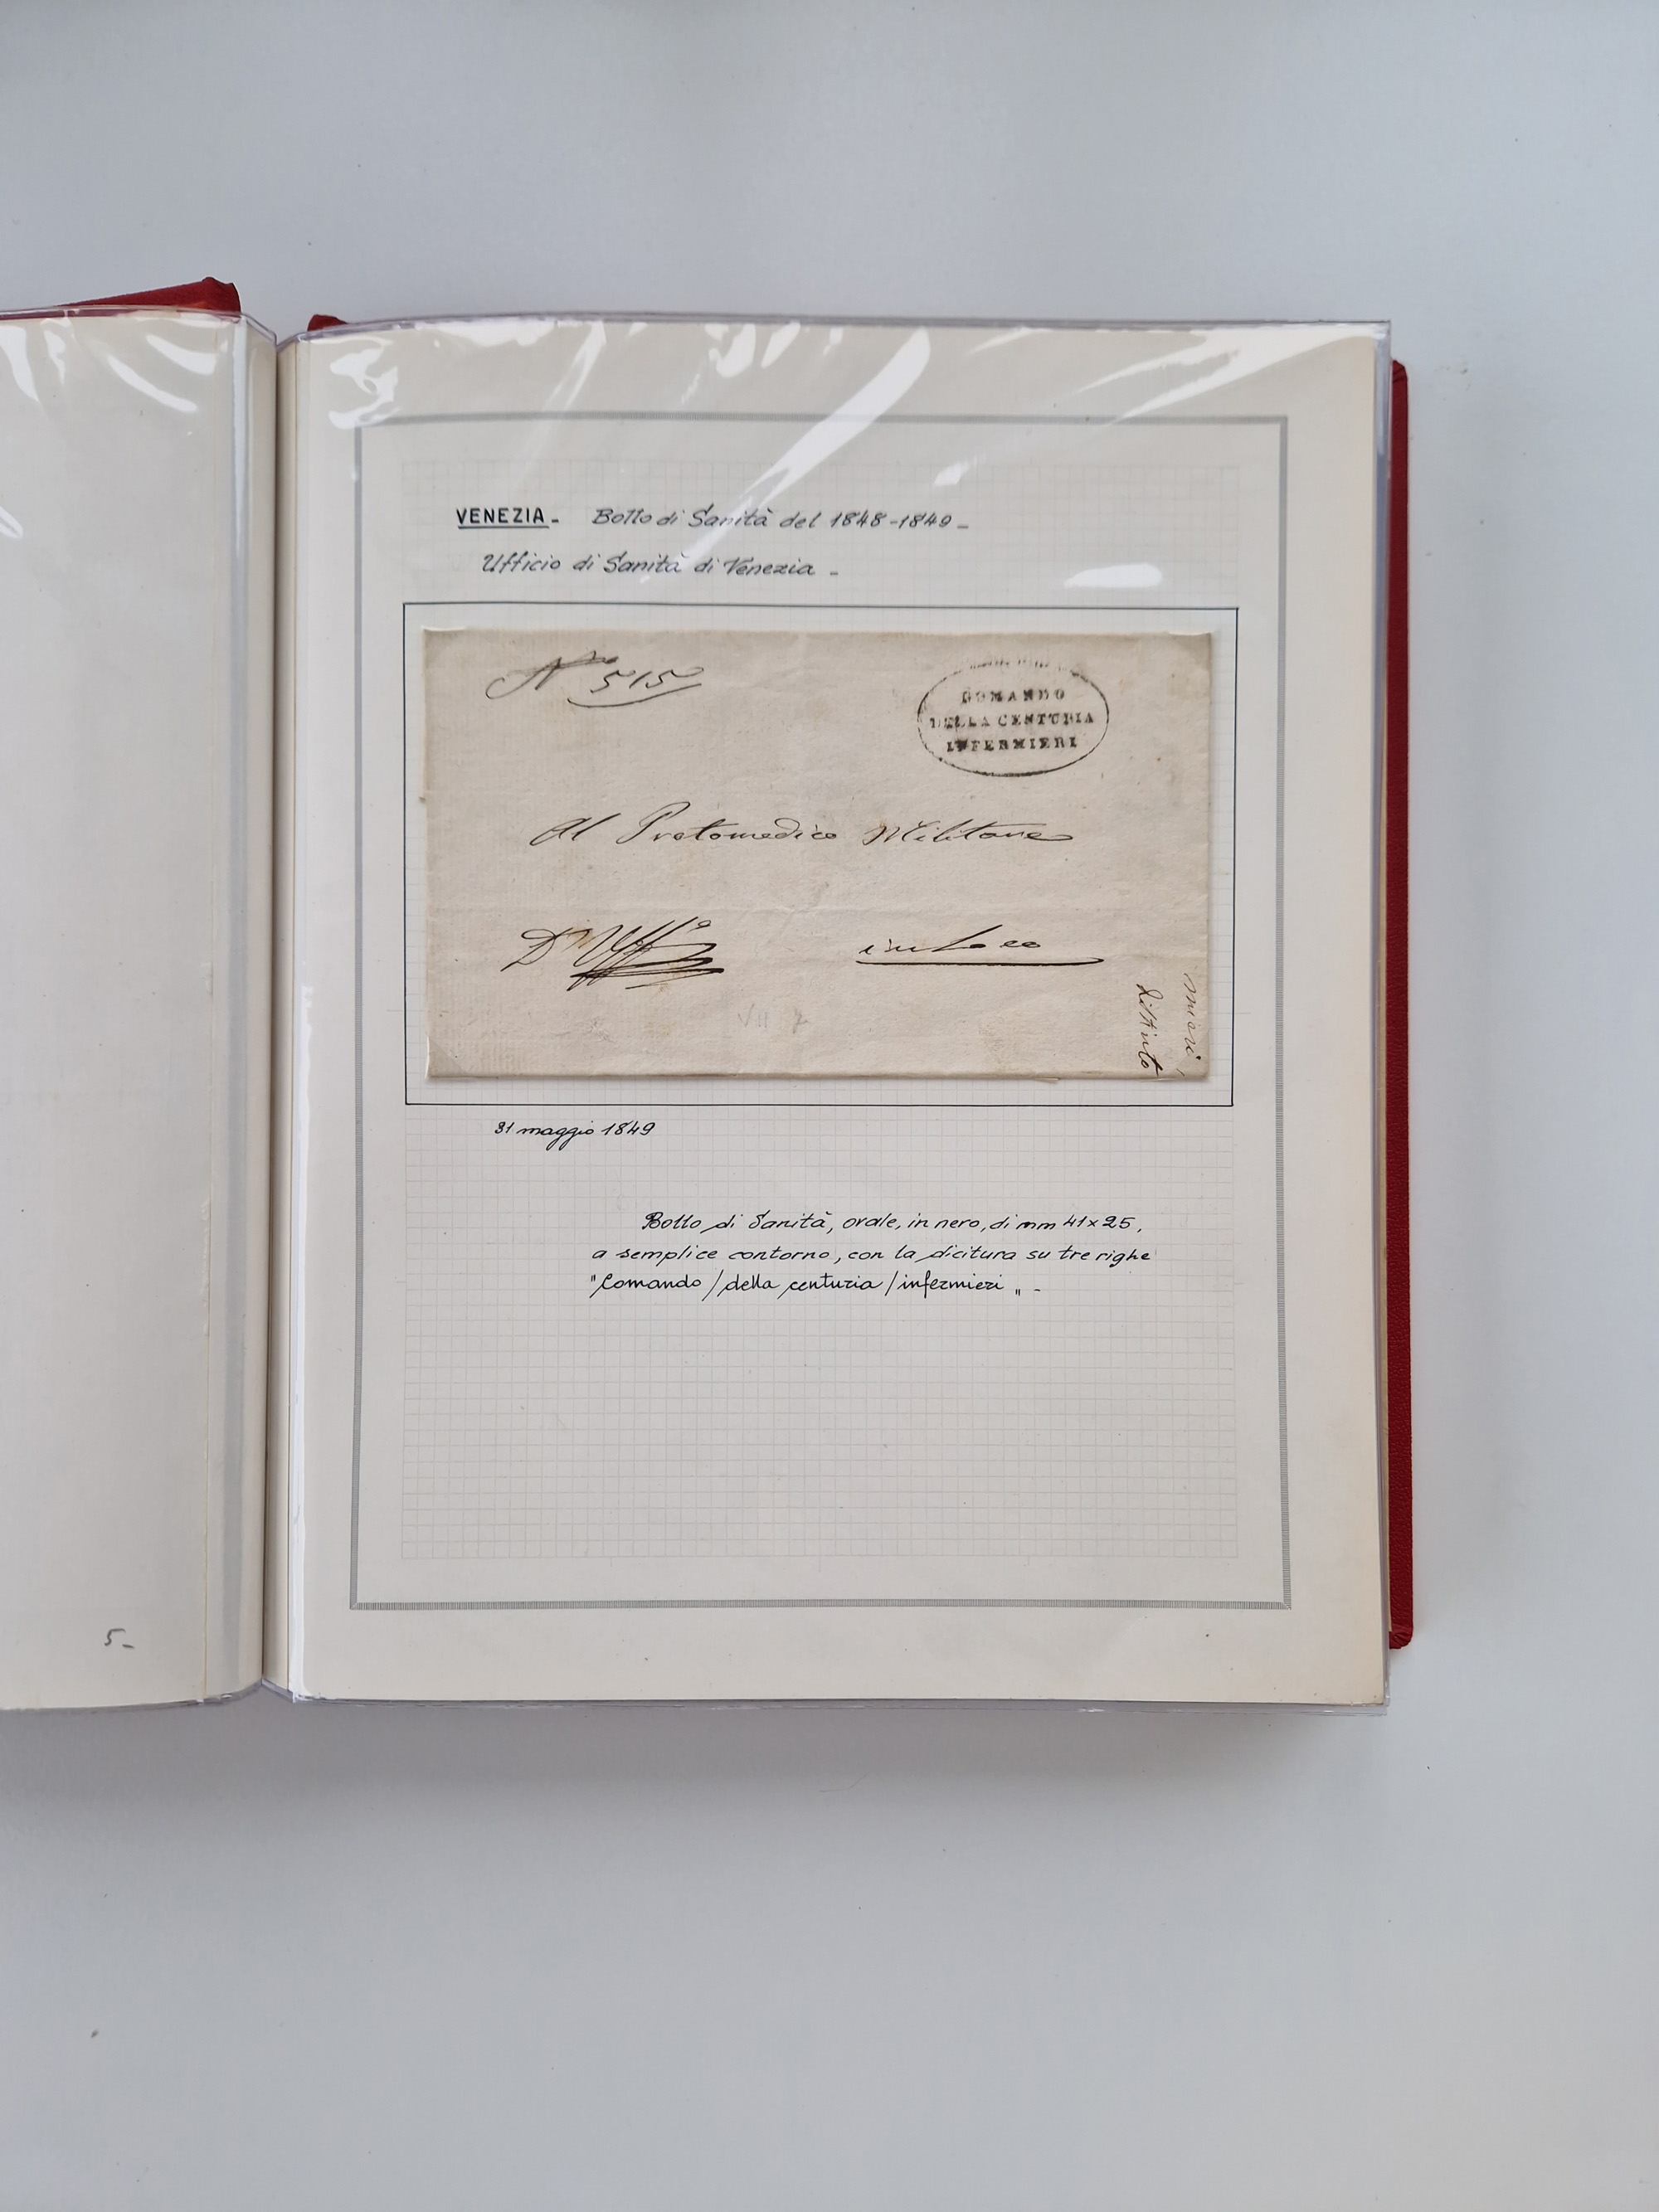 VENEZIA - Bollo di Sanità del 1848-1849 -
Ufficio di Sanità di Venezia -
N° 515
COMANDO
DELLA CENTURIA
INFERMIERI
Al Protomedico Militare
D'Uff°
in Loco
distinto
VII 7
31 maggio 1849
Bollo di Sanità, ovale, in nero, di mm 41x25,
a semplice contorno, con la dicitura su tre righe
"Comando / della centuria / infermieri" -
5-